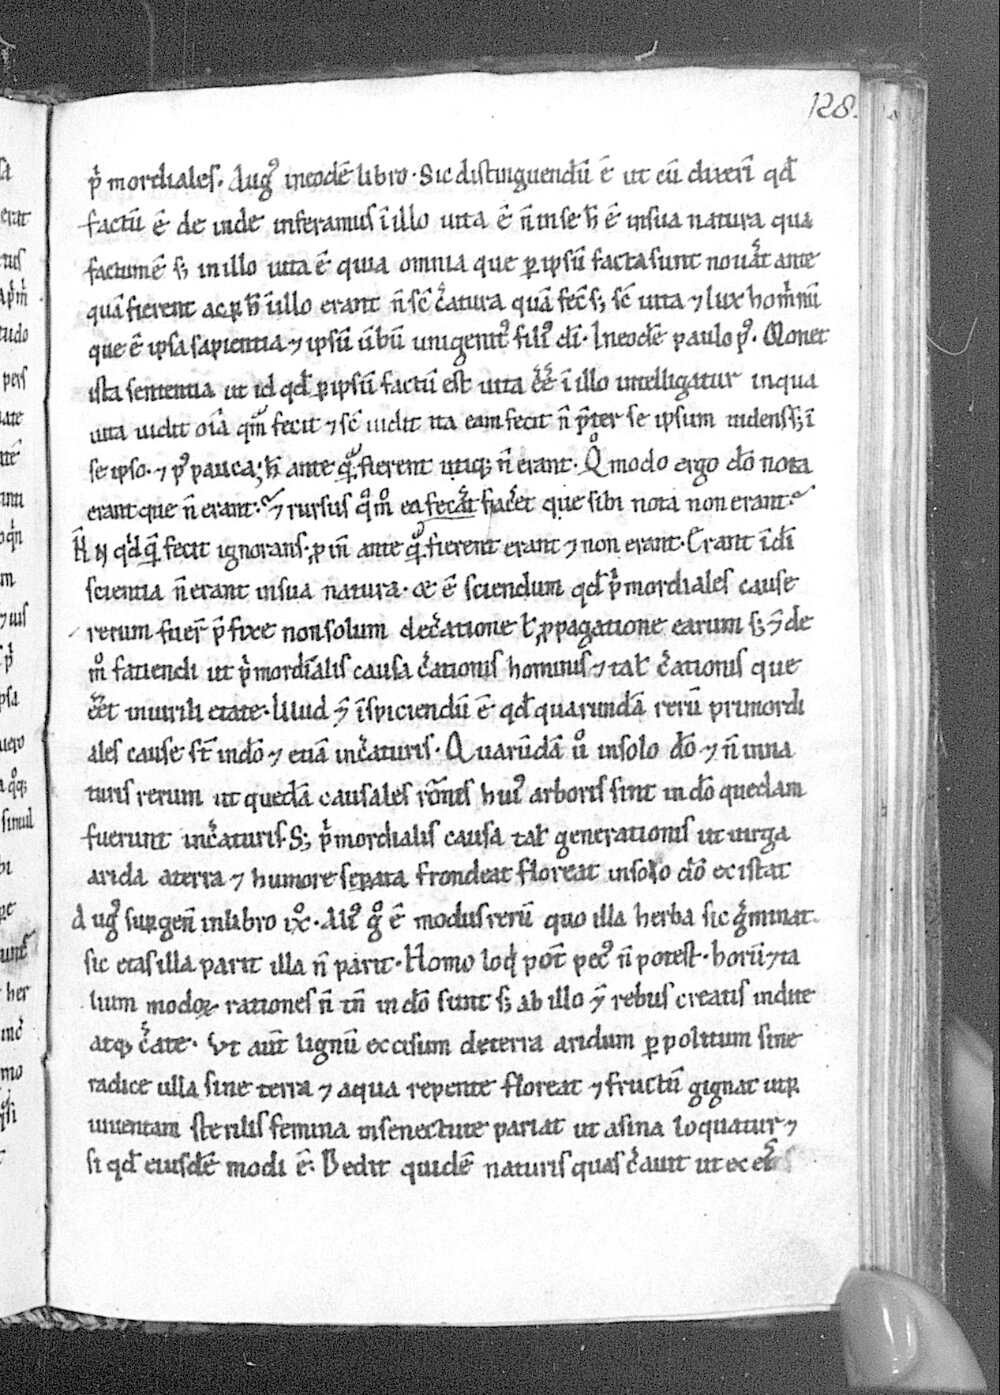 128.
p̾mordiales. Augꝰ ineodē libro. Sic distinguendū ē ut cū dixerī qđ
factū ē de inde inferamus ī illo uita ē n̄ inse h̄ ē insua natura qua
factum ē s; inillo uita ē quia omnia que ꝑ ipsū facta sunt nouat ante
quā fierent ac ꝑ h̄ ī illo erant n̄ sic̄ c̾atura quā fec̄ s; sic̄ uita ⁊ lux hom̄nū
que ē ipsa sapientia ⁊ ipsū ūbū unigenitꝰ filiꝰ dī. Ineodē paulo pꝰ. Monet
ista sententia ut id qđ ꝑ ipsū factū est uita ēē ī illo intelligatur inqua
uita uidit oīa qn̄ fecit ⁊ sic̄ uidit ita eam fecit n̄ p̄ter se ipsum uidens s; ī
se ipso. ⁊ pꝰ pauca; h̄ ante quā fierent utiqꝫ n̄ erant. Qͦ modo ergo dō nota
erant que n̄ erant. ⁊ rursus qͦmͦ ea fecat faceret que sibi nota non erant.
N̄ n̄ qđ qͣ fecit ignorans. ꝓ in̄ ante quā fierent erant ⁊ non erant. Erant ī dī
scientia n̄ erant insua natura. æ ē sciendum qđ p̾mordiales cause
rerum fuer̄ p̄fixe nonsolum dec̾atione ł ꝓpagatione earum s; ⁊̄ de
mͦ fatiendi ut p̾mordialis causa c̾ationis hominis ⁊ tal̄ c̾ationis que
ēēt inuirili etate. Illud ⁊̄ īspiciendū ē qđ quarundā rerū primordi
ales cause st̄ indō ⁊ etiā inc̾aturis. Quarūdā uͦ insolo dō ⁊ n̄ inna
turis rerum ut quedā causales rōnes huiꝰ arboris sint indō quedam
fuerunt inc̾aturis. S; p̾mordialis causa tal̄ generationis ut uirga
arida aterra ⁊ humore seꝑata frondeat floreat insolo dō existat
Augꝰ suꝑ gen̄ inlibro ix̊. Aliꝰ gͦ ē modus rerū quo illa herba sic g̾minat.
sic etas illa parit illa n̄ parit. Homo loqͥ pot̄ pecꝰ n̄ potest. horū ⁊ ta
lium modoꝝ rationes n̄ tn̄ indō sunt s; ab illo ⁊̄ rebus creatis indite
atqꝫ c̾ate. Vt aut̄ lignū excisum deterra aridum ꝑpolitum sine
radice ulla sine terra ⁊ aqua repente floreat ⁊ fructū gignat ut ꝑ
iuuentam sterilis femina insenectute pariat ut asina loquatur ⁊
si qđ eiusdē modi ē. Dedit quidē naturis quas c̾auit ut ex